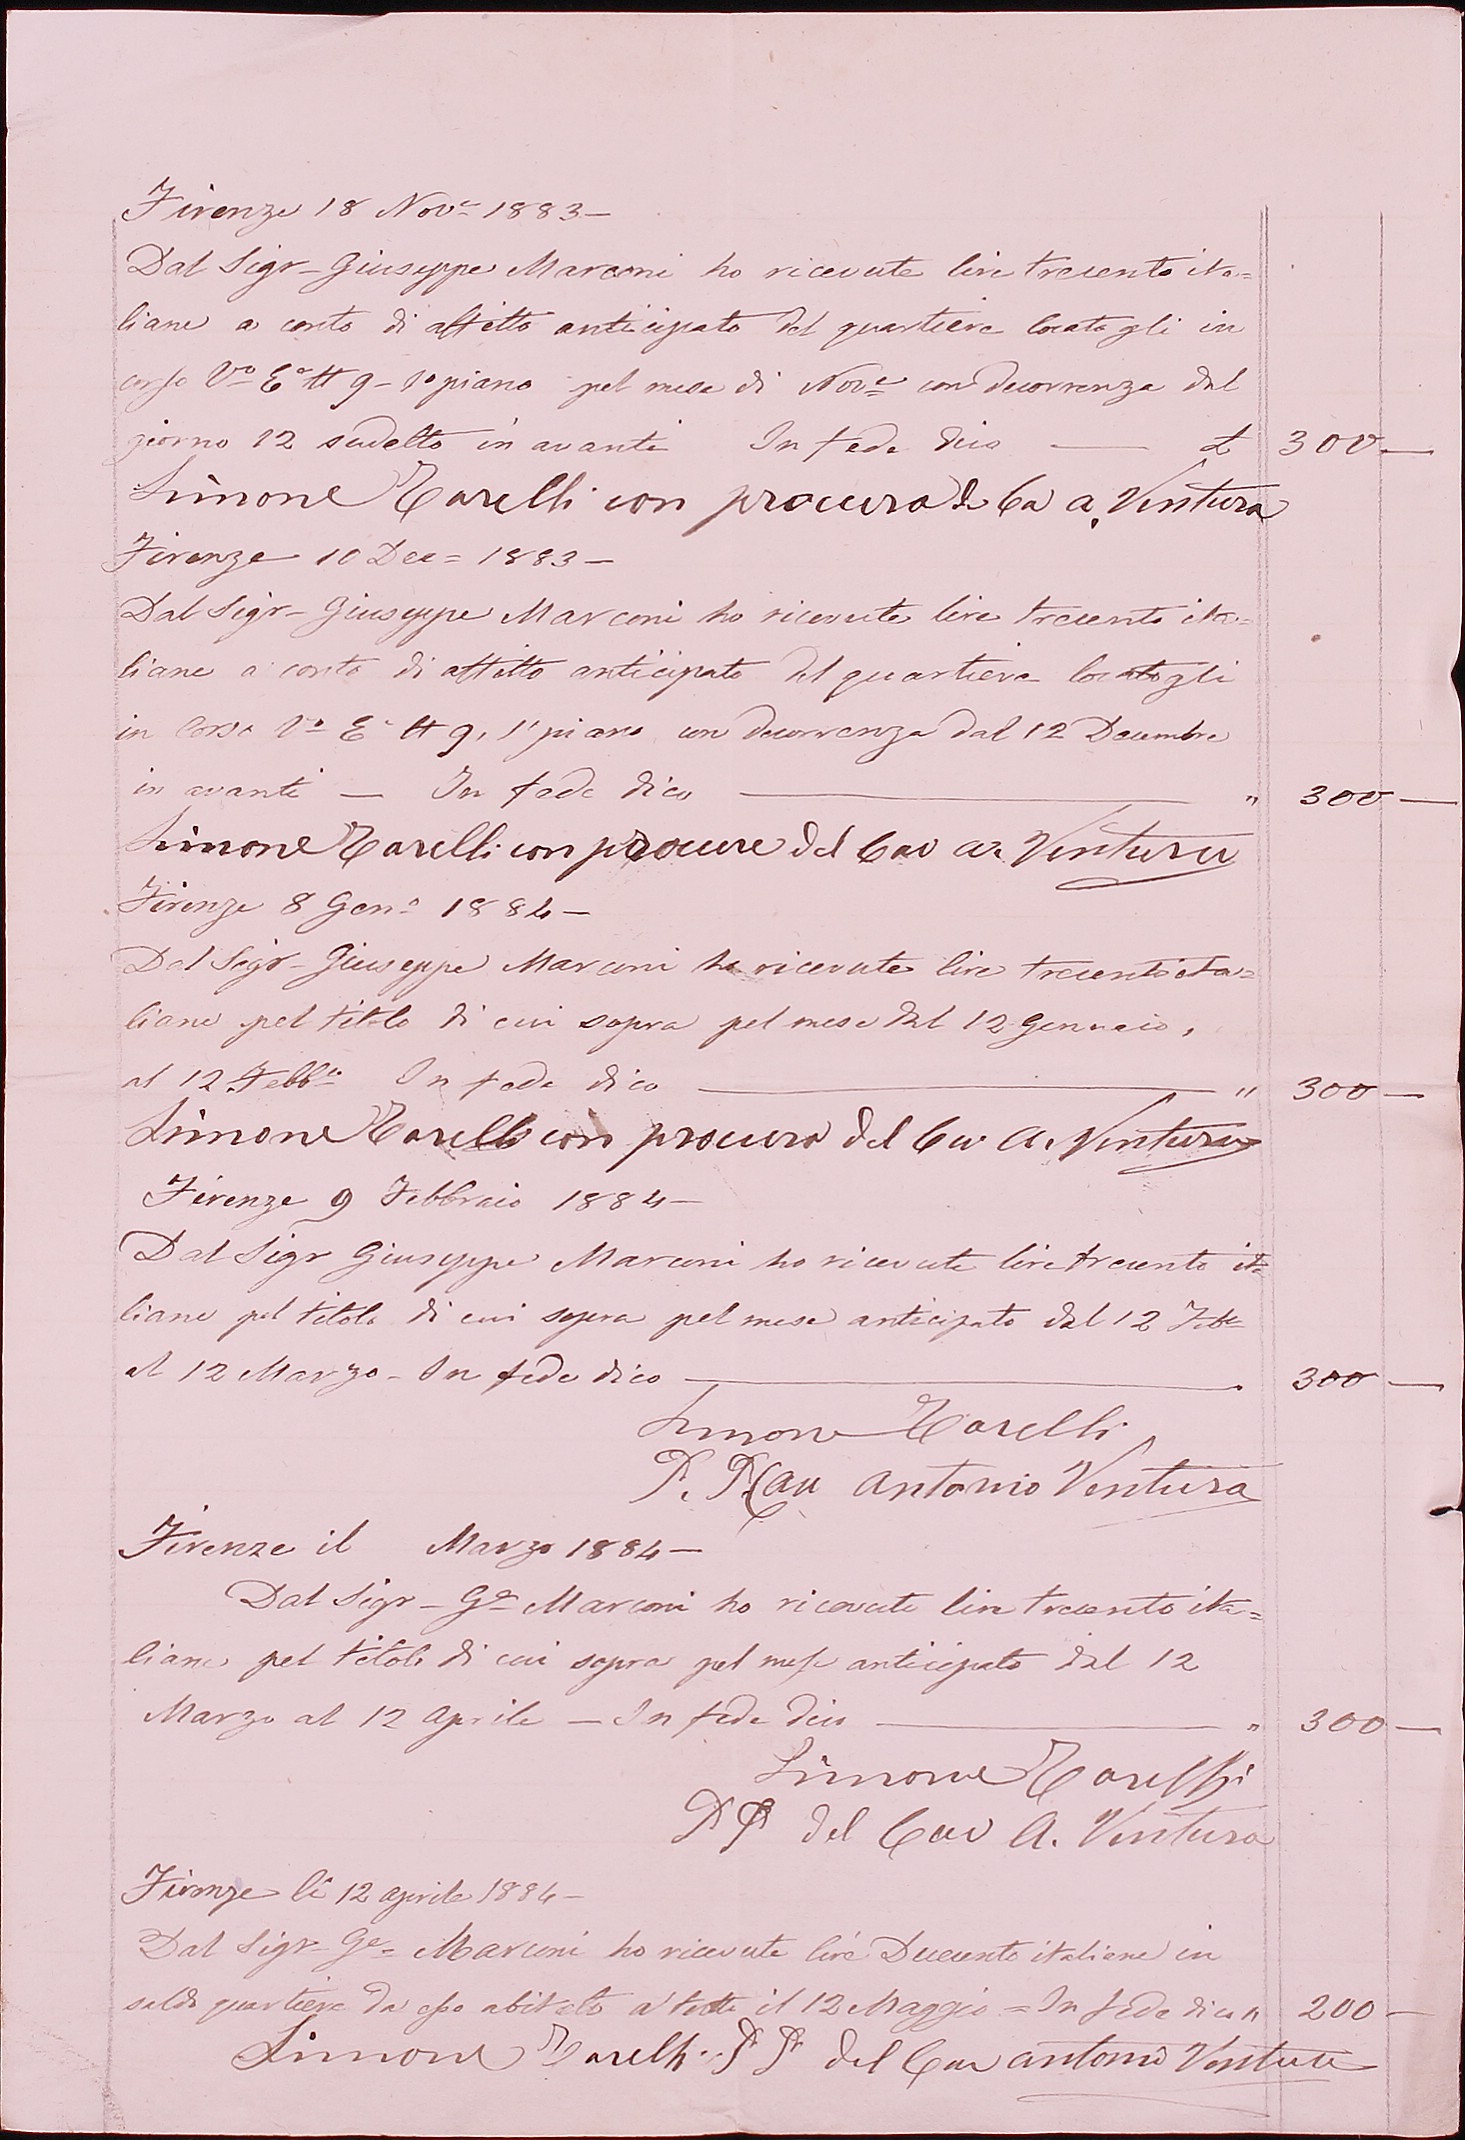 Firenze 18 Nov.e 1883 —
Dal Sigr - Giuseppe Marconi ho ricevute lire trecento ita=
liane a conto di affitto anticipato del quartiere locatogli in
corso V.o E.e # 9 - 1° piano pel mese di Nov.e con decorrenza dal
giorno 12 sudetto in avanti In fede dico — £ 300 —
Simone Tarelli con procura di Ca A. Ventura
Firenze 10 Dec = 1883 —
Dal Sigr - Giuseppe Marconi ho ricevute lire trecento ita=
liane a conto di affitto anticipato del quartiere locatogli
in Corso V.o E.e # 9, 1° piano con decorrenza dal 12 Decembre
in avanti — In fede dico — " 300 —
Simone Tarelli con procura del Cav A. Ventura
Firenze 8 Gen.o 1884 —
Dal Sigr - Giuseppe Marconi ho ricevute lire trecento ita=
liane pel titolo di cui sopra pel mese dal 12 Gennaio,
al 12 Febb.o In fede dico — " 300 —
Simone Tarelli con procura del Cav A. Ventura
Firenze 9 Febbraio 1884 —
Dal Sigr Giuseppe Marconi ho ricevute lire trecento ita
liane pel titolo di cui sopra pel mese anticipato dal 12
al 12 Marzo - In fede dico — 300 —
Simone Tarelli
P. P. Cav Antonio Ventura
Firenze il Marzo 1884 —
Dal Sigr - G.e Marconi ho ricevute lire trecento ita=
liane pel titolo di cui sopra pel mese anticipato dal 12
Marzo al 12 Aprile — In fede dico — " 300 —
Simone Tarelli
PP del Cav A. Ventura
Firenze li 12 Aprile 1884 —
Dal Sigr - G.e = Marconi ho ricevute lire Duecento italiane in
saldo quartiere da esso abitato a tutto il 12 Maggio = In fede dico " 200 —
Simone Tarelli PP del Cav Antonio Ventura